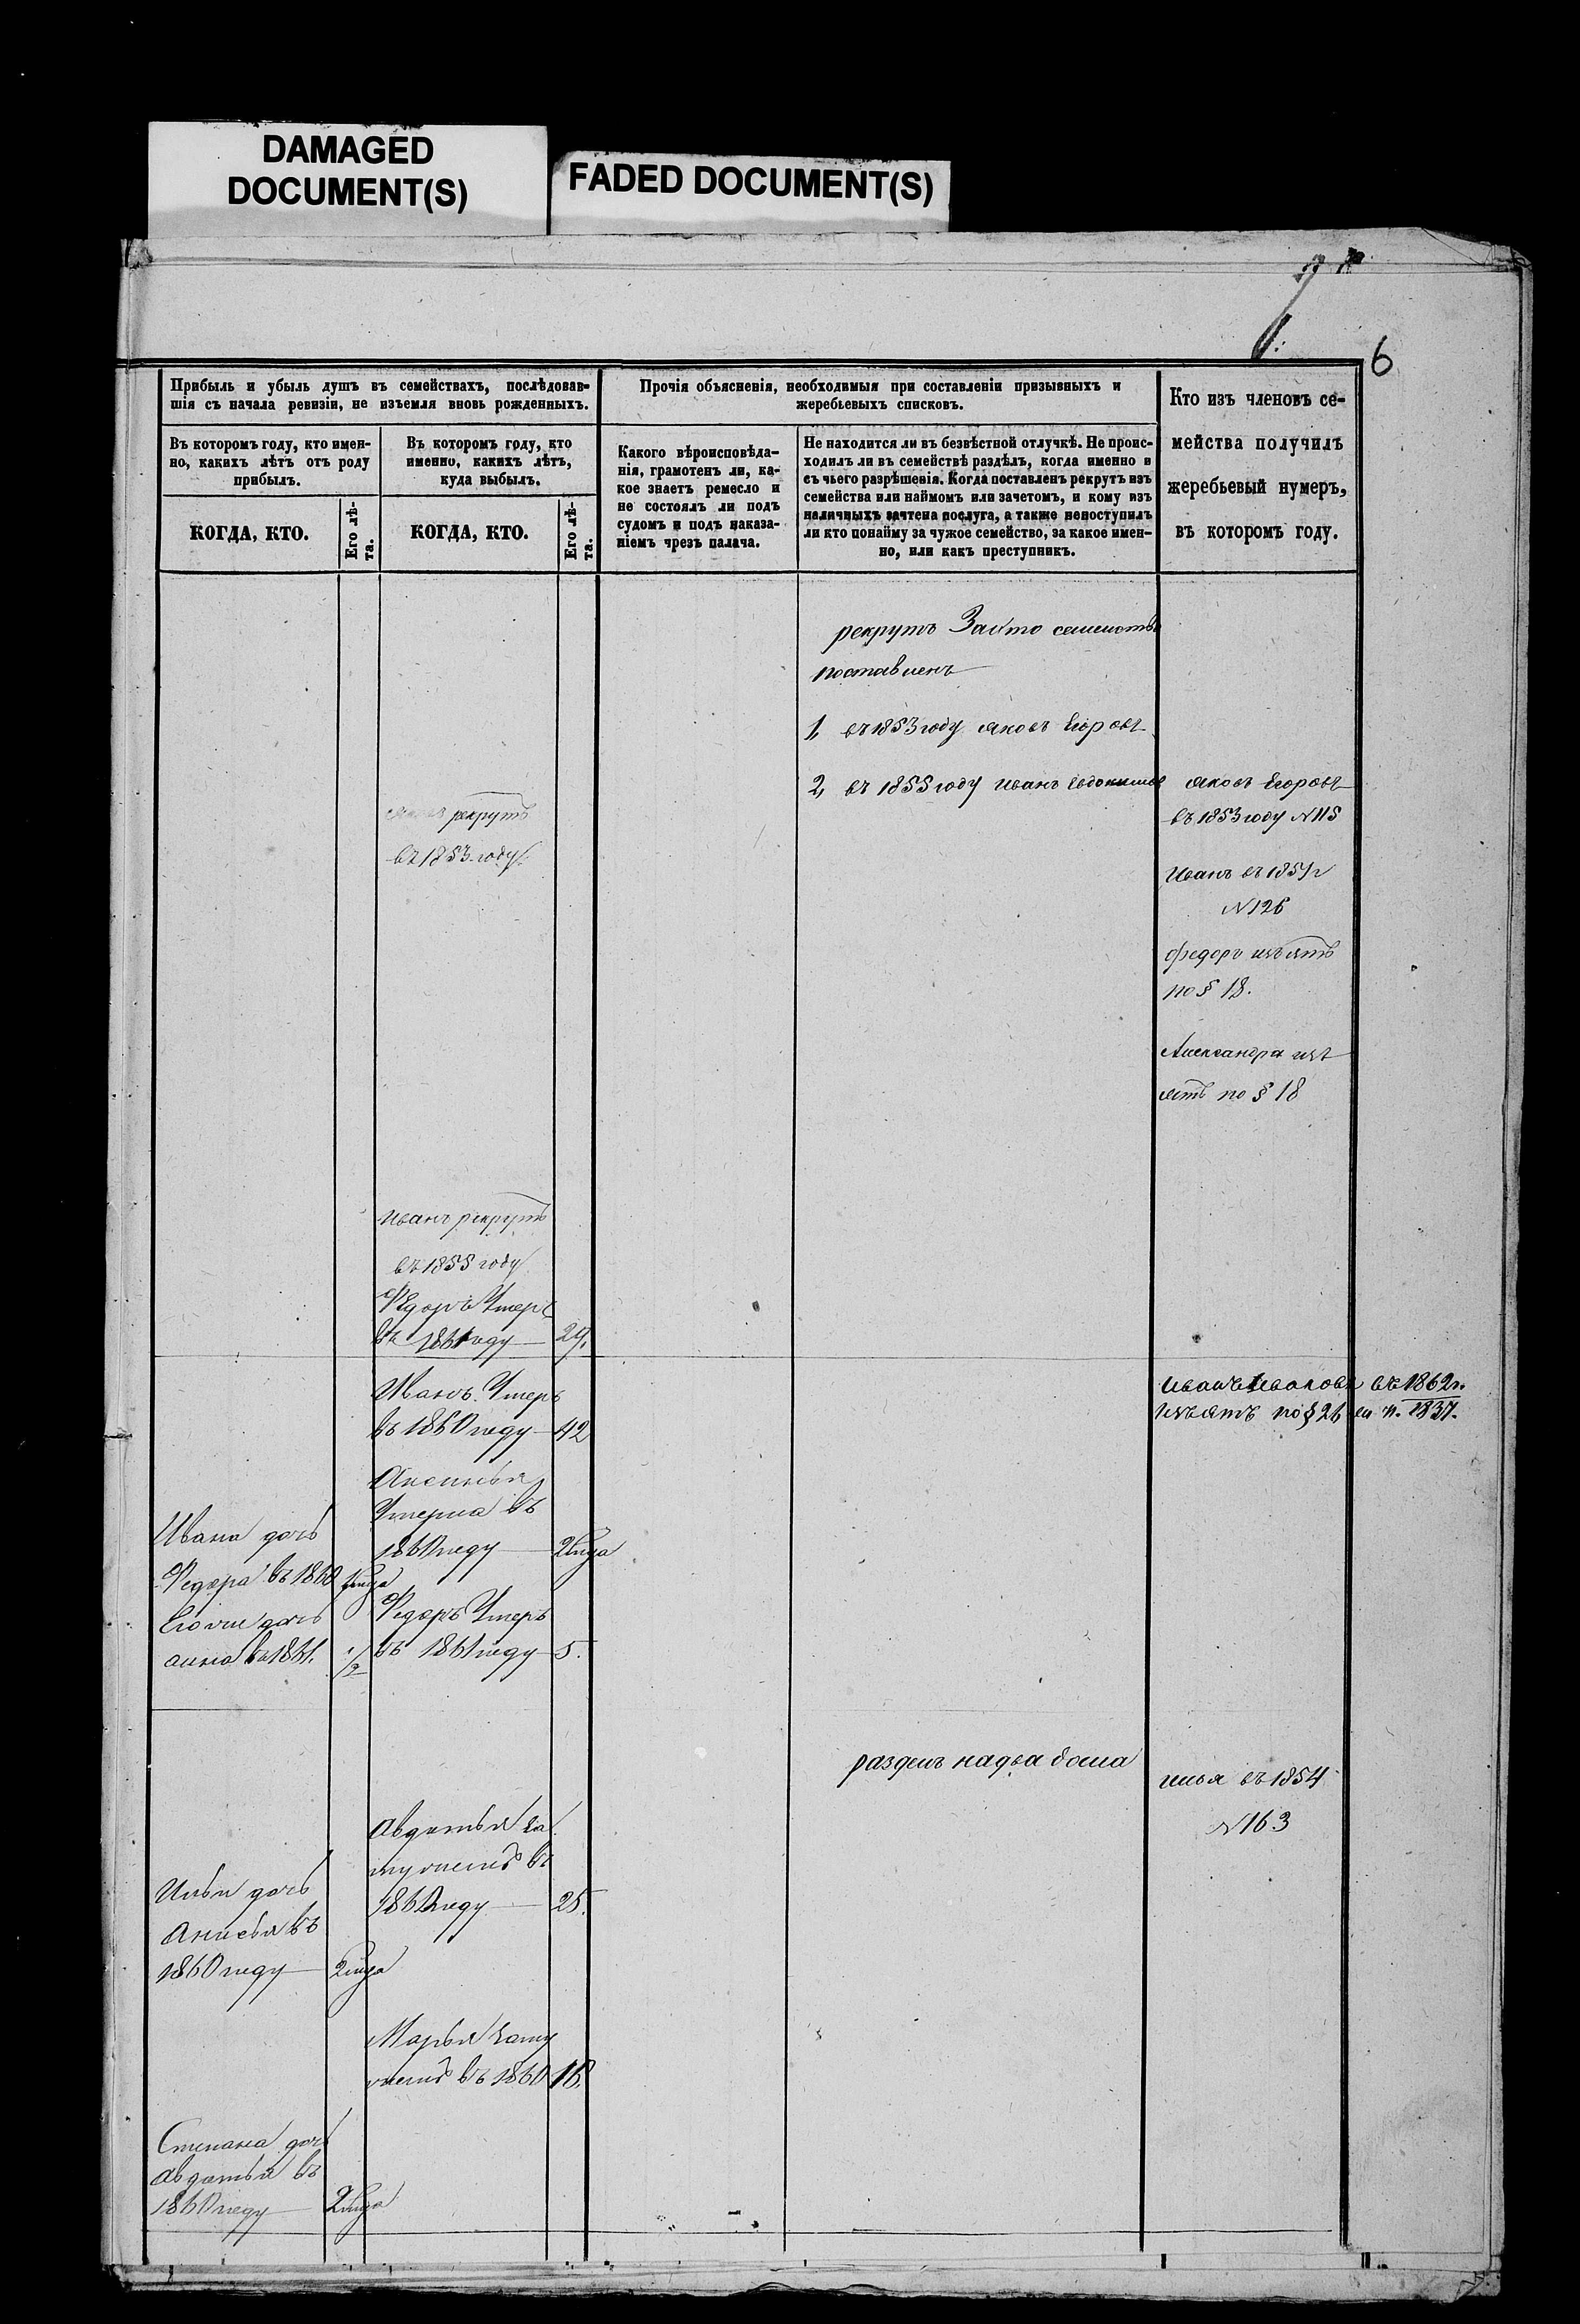 DAMAGED
DOCUMENT(S)
FADED DOCUMENT(S)
6
Прибыль и убыль душъ въ семействахъ, послѣдовав-
шія съ начала ревизіи, не изъемля вновь рожденныхъ.
Въ которомъ году, кто имен-
но, какихъ лѣтъ отъ роду
прибылъ.
Въ которомъ году, кто
именно, какихъ лѣтъ,
куда выбылъ.
КОГДА, КТО.
Его лѣ-
та.
КОГДА, КТО.
Его лѣ-
та.
Прочія объясненія, необходимыя при составленіи призывныхъ и
жеребьевыхъ списковъ.
Какого вѣроисповѣда-
нія, грамотенъ ли, ка-
кое знаетъ ремесло и
не состоялъ ли подъ
судомъ и подъ наказа-
ніемъ чрезъ палача.
Не находится ли въ безвѣстной отлучкѣ. Не проис-
ходилъ ли въ семействѣ раздѣлъ, когда именно и
съ чьего разрѣшенія. Когда поставленъ рекрутъ изъ
семейства или наймомъ или зачетомъ, и кому изъ
наличныхъ зачтена послуга, а также непоступилъ
ли кто понайму за чужое семейство, за какое имен-
но, или какъ преступникъ.
Кто изъ членовъ се-
мейства получилъ
жеребьевый нумеръ,
въ которомъ году.
рекрутъ
поставленъ
1, въ 1853 году яковъ Егоровъ
2, въ 1855 году иванъ Евдокимов
яковъ Егоровъ
въ 1853 году N 115
рекрутъ
въ 1853 году
Иванъ въ 1854 г
N 126
федоръ изъятъ
по § 18.
Александра изъ
ятъ по § 18
иванъ рекрутъ
въ 1855 году
Федоръ Умеръ
въ 1861 году 29.
Иванъ Умеръ
въ 1860 году 42
иванъ Ивановъ въ 1862 г.
изъятъ по § 26 1837.
Аксинья
Умерла въ
1860 году 2 года
Ивана дочь
Федора въ 1860
Федоръ Умеръ
въ 1861 году 5.
дочь
анна въ 1861. 1/2
разделъ на два дома
илья въ 1854
N 163
Авдотья за
мужемъ въ
1860 году 25.
Ильи дочь
Анисья въ
1860 году 2 года
Марья заму
жемъ въ 1860 18.
Степана дочь
Авдотья въ
1860 году 2 года